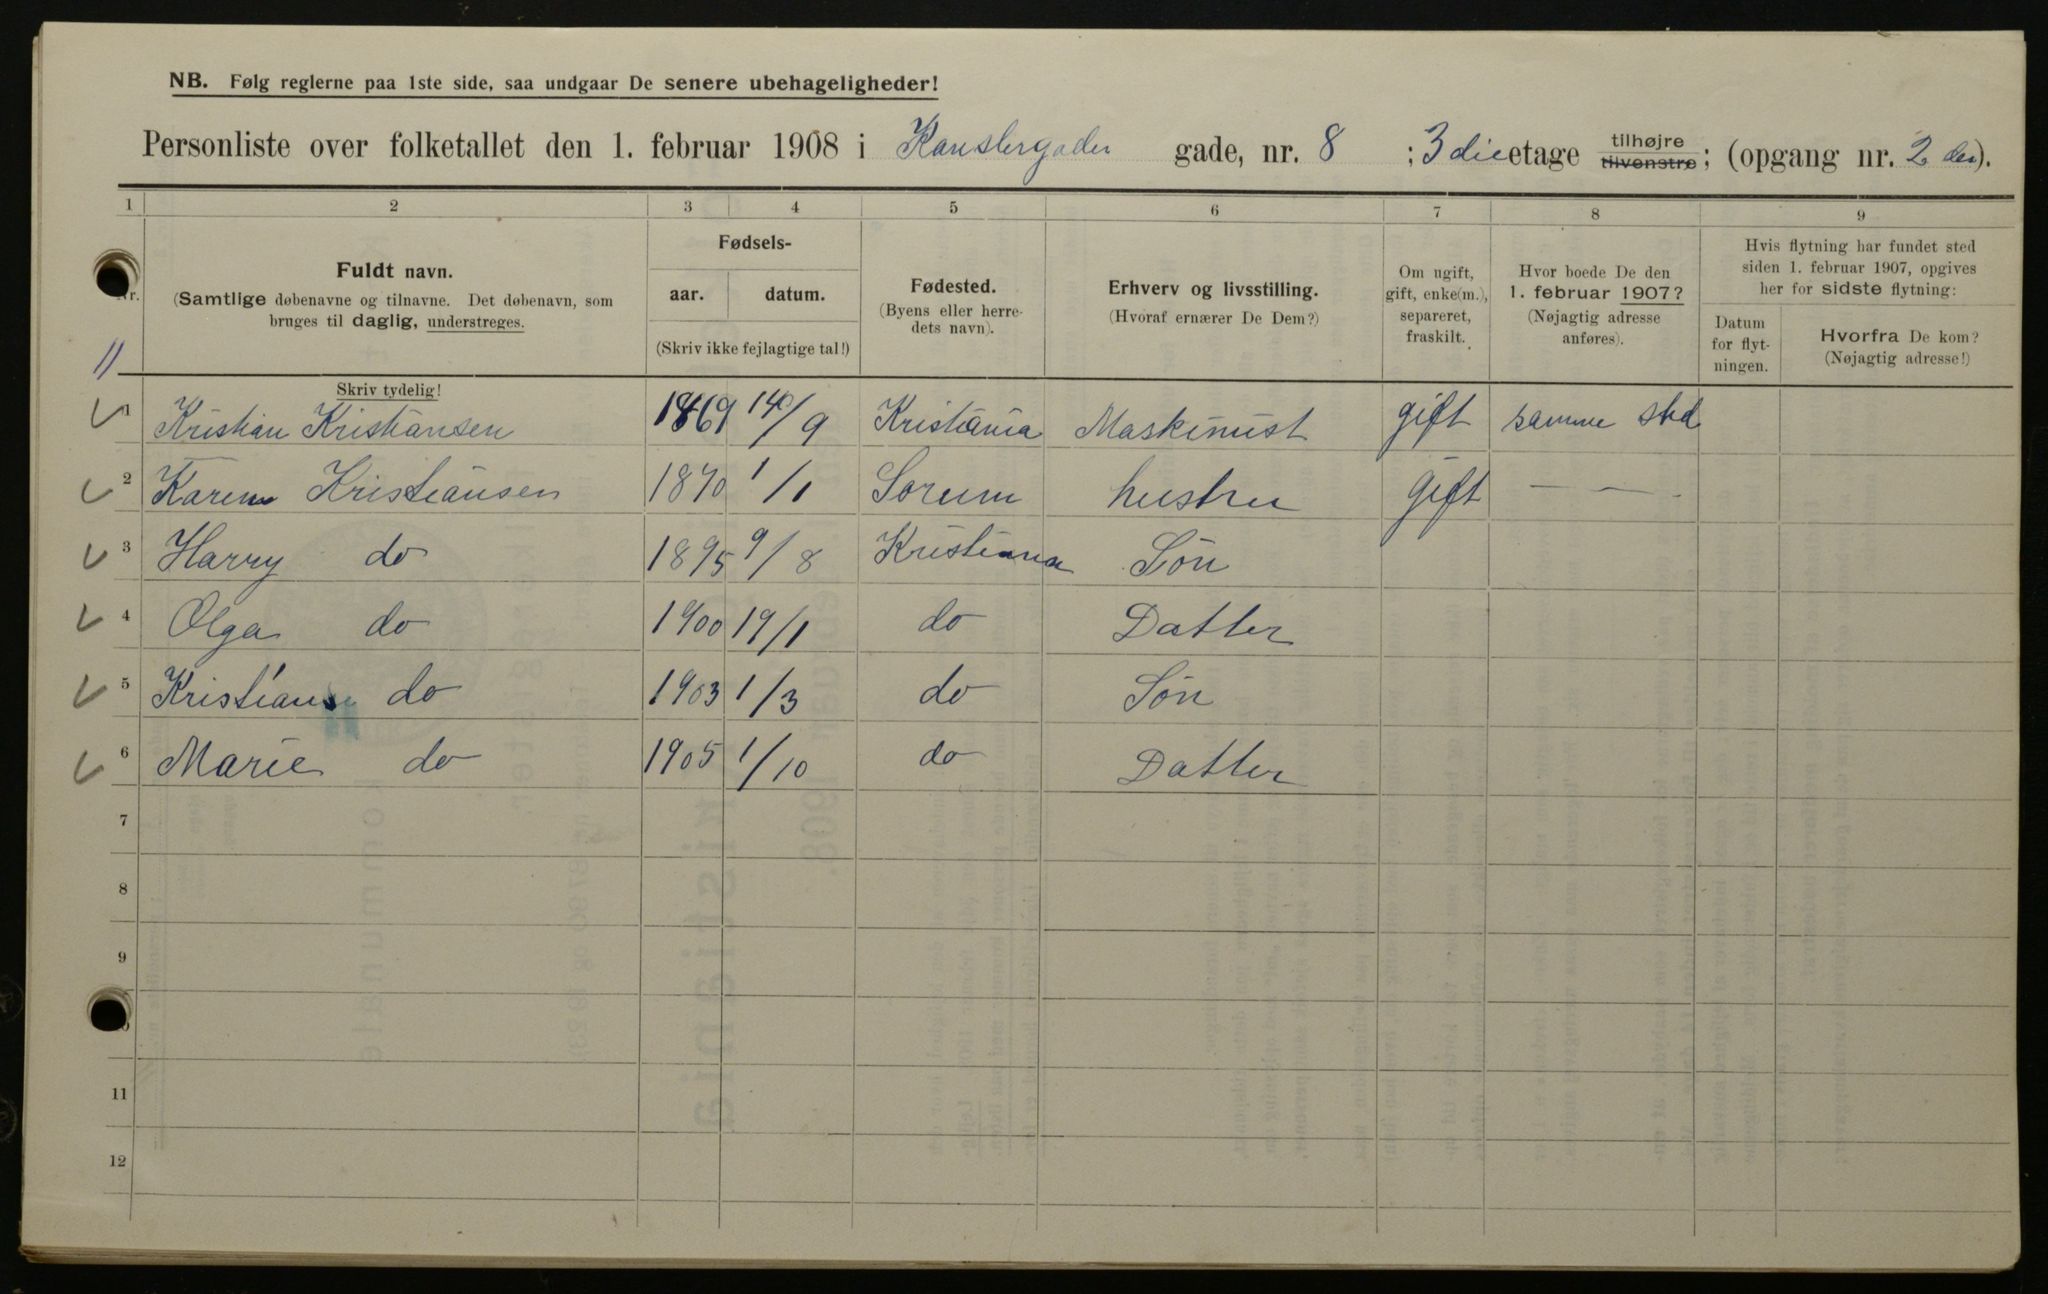 NB. Følg reglerne paa 1ste side, saa undgaar De senere ubehageligheder!
Personliste over folketallet den 1. februar 1908 i Kanslergaden gade, nr. 8 ; 3die etage tilhøjre tilvenstre; (opgang nr. 2 den).
1 2 3 4 5 6 7 8 9
Nr.
Fuldt navn.
(Samtlige døbenavne og tilnavne. Det døbenavn, som
bruges til daglig, understreges.
Skriv tydelig!
Fødsels-
aar. datum.
(Skriv ikke fejlagtige tal!)
Fødested.
(Byens eller herre-
dets navn).
Erhverv og livsstilling.
(Hvoraf ernærer De Dem?)
Om ugift,
gift, enke(m.),
separeret,
fraskilt.
Hvor boede De den
1. februar 1907?
(Nøjagtig adresse
anføres).
Hvis flytning har fundet sted
siden 1. februar 1907, opgives
her for sidste flytning:
Datum
for flyt-
ningen.
Hvorfra De kom?
(Nøjagtig adresse!)
11
1 Kristian Kristiansen 1869 14/9 Kristiania Maskinist gift samme sted
2 Karen Kristiansen 1870 1/1 Sorum hustru gift — —
3 Harry do 1895 9/8 Kristiana Sön
4 Olga do 1900 19/1 do Datter
5 Kristian do 1903 1/3 do Sön
6 Marie do 1905 1/10 do Datter
7
8
9
11
12